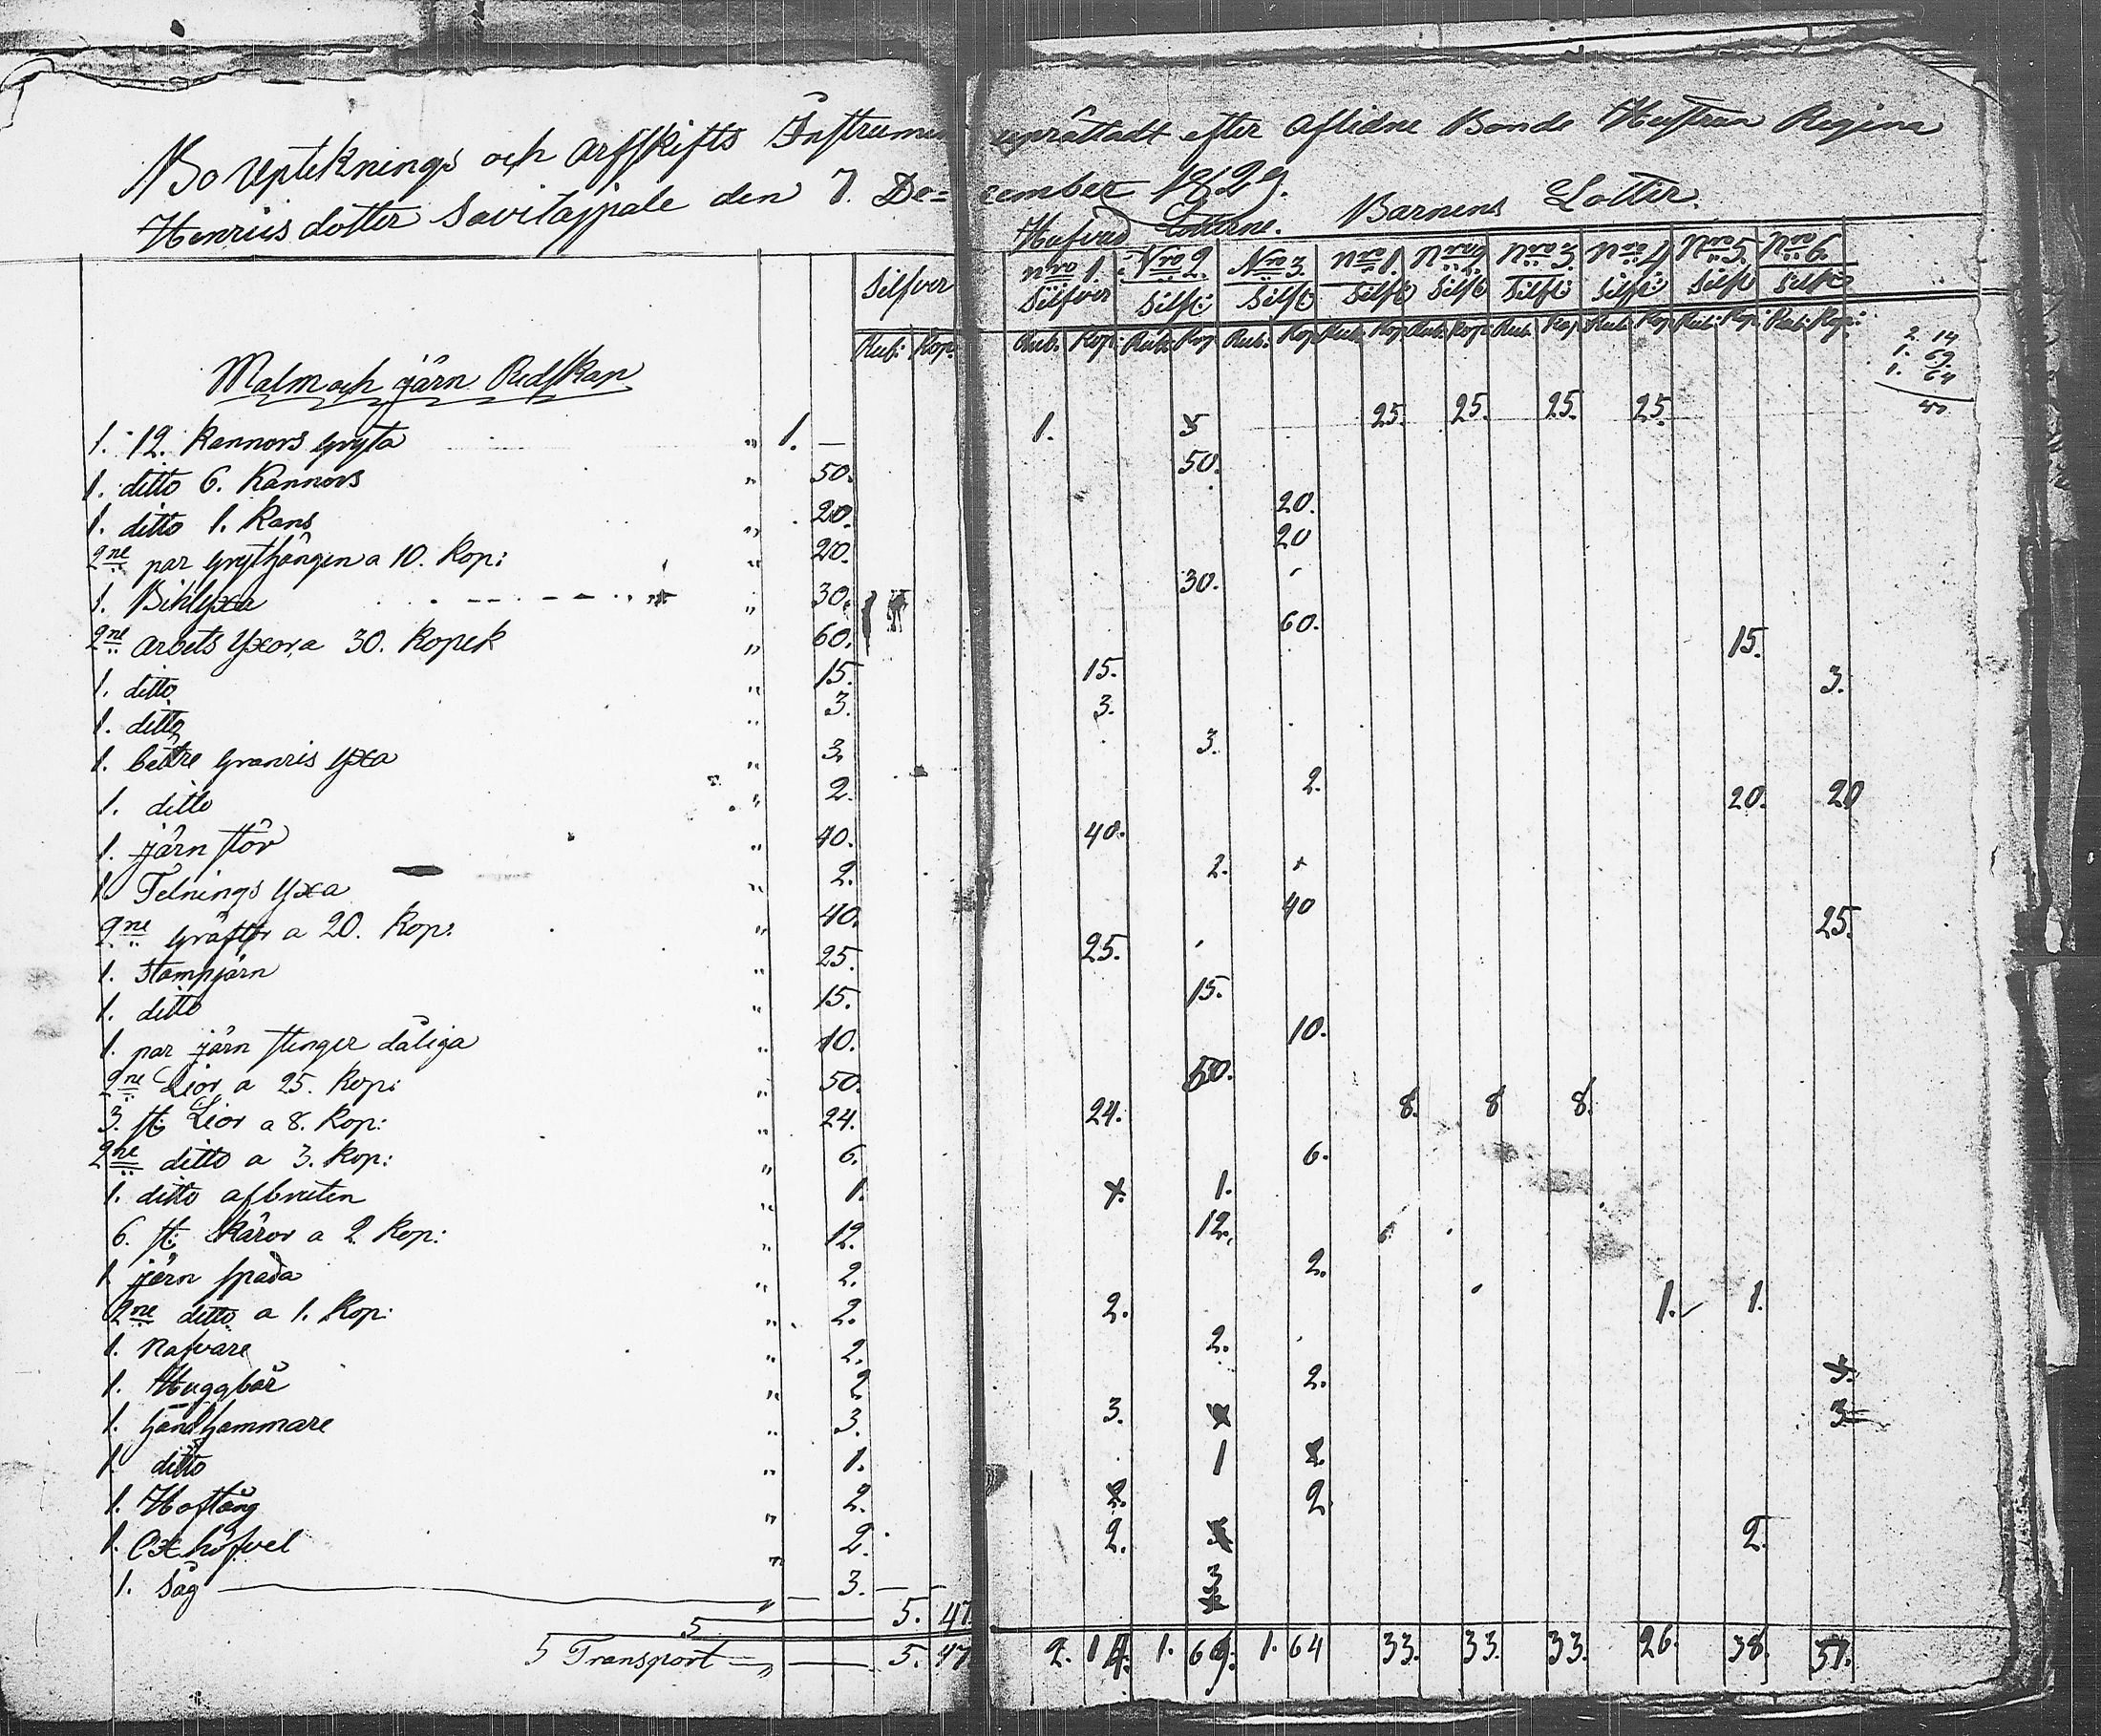 Bo Upteknings och arfskifts Instrument uprättadt efter Aflidne Bonde Hustrun Regina
Henriis dotter Savitaipale den 7. December 1829.
Hufvud Lotterne. Barnens Lotter.
Silfver nro 1. Silfver Nro 2. Silft: Nro 3. Silft nro 1. Silft nro 2 Silft nro 3. Silft: nro 4 Silft: Nro 5. Silft Nro 6. Silft
Rub: Kop: Rub. Kop: Rub: Kop Rub. Kop Rub. Kop Rub: Kop: Rub. Kop Rub: Kop Rub: Kop: Rub: Kop:
2. 14
1. 69.
1. 64
40
Malm och järn Redskap
1. 12. kannors gryta „ 1. — 1. 5 25. 25. 25. 25.
1. ditto 6. kannors „ 50. 50.
1. ditto 1. kans „ 20. 20.
2ne par grythängen a 10. Kop: „ 20. 20
1. Bihlyxa „ 30. 30.
2ne arbets yxor a 30. Kopek „ 60. 60. 15.
1. ditto „ 15. 15. 3.
1. ditto „ 3. 3.
1. bettre granris yxa „ 3. 3.
1. ditto „ 2. 2. 20. 20
1. järn stör „ 40. 40.
1. Telnings yxa „ 2. 2.
2ne gräftor a 20. Kop: „ 40. 40 25.
1. Stampjärn „ 25. 25.
1. ditto „ 15. 15.
1. par järn stenger dåliga „ 10. 10.
2ne Lior a 25. Kop: „ 50. 50.
3. st: Lior a 8. Kop: „ 24. 24. 8. 8 8.
2ne ditto a 3. Kop: „ 6. 6.
1. ditto afbruten „ 1. 1.
6. st: Skäror a 2 Kop: „ 12. 12.
1 järn spada „ 2. 2.
2ne ditto a 1. Kop: „ 2. 2. 1. 1.
1. Nafvare „ 2. 2.
1. Huggbår „ 2 2.
1. handhammare „ 3. 3. 3
1 ditto „ 1. 1
1. Hoftång „ 2. 2
1. Oxhöfvel „ 2. 2. 2.
1. Såg „ — 3. — 3
5 — 5. 47
5 Transport — „ — 5. 47 2. 14. 1. 69. 1. 64 33. 33. 33. 26. 38. 51.